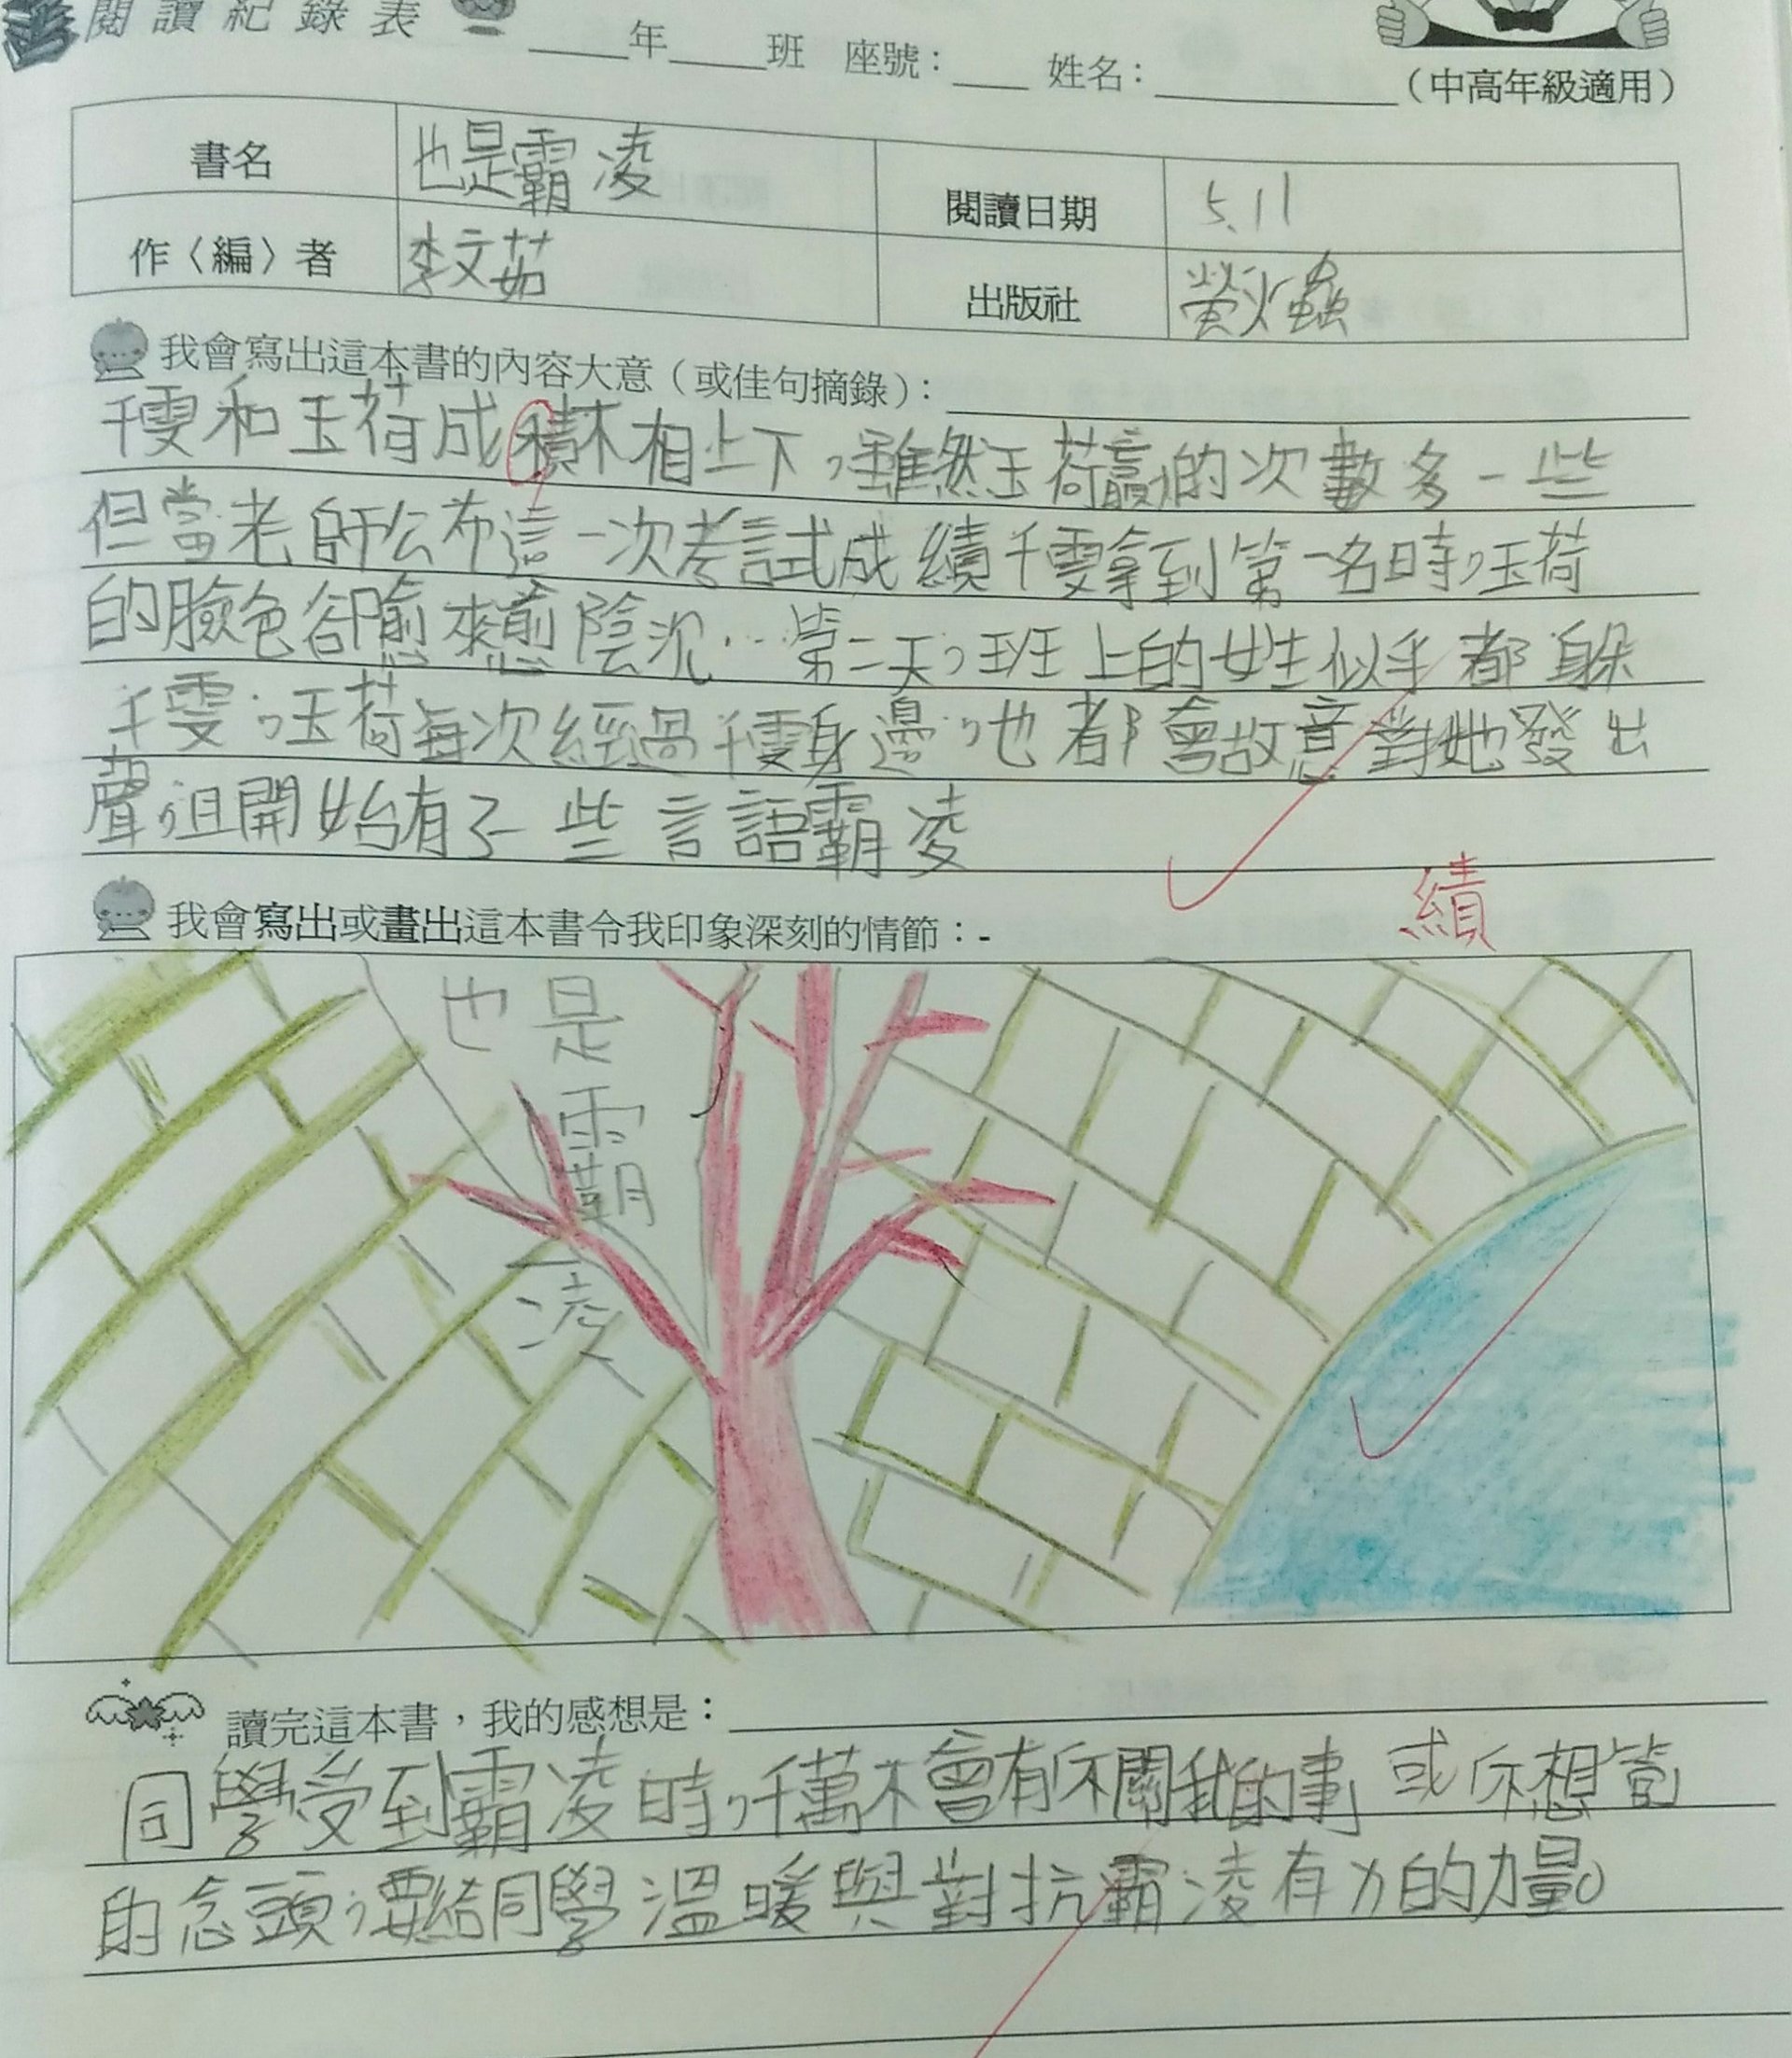 閱讀紀錄表
年 班 座號： 姓名：
（中高年級適用）
書名 也是霸凌 閱讀日期 5.11
作〈編〉者 李文茹 出版社 螢火蟲
我會寫出這本書的內容大意（或佳句摘錄）：
千雯和玉荷成積本相上下，雖然玉荷贏的次數多一些
但當老師公布這一次考試成績千雯拿到第一名時，玉荷
的臉色卻愈來愈陰沉…第二天，班上的女生似乎都躲
千雯，玉荷每次經過千雯身邊，也都會故意對她發出
聲，且開始有了一些言語霸凌
績
我會寫出或畫出這本書令我印象深刻的情節：-
也是
霸
凌
讀完這本書，我的感想是：
同學受到霸凌時，千萬不會有不關我的事或不想管
的念頭，要給同學溫暖與對抗霸凌有力的力量。